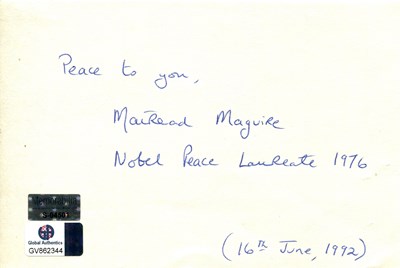 Peace to you,
Mairead Maguire
Nobel Peace Laureate 1976
Global Authentics
GV862344
(16th June, 1992)